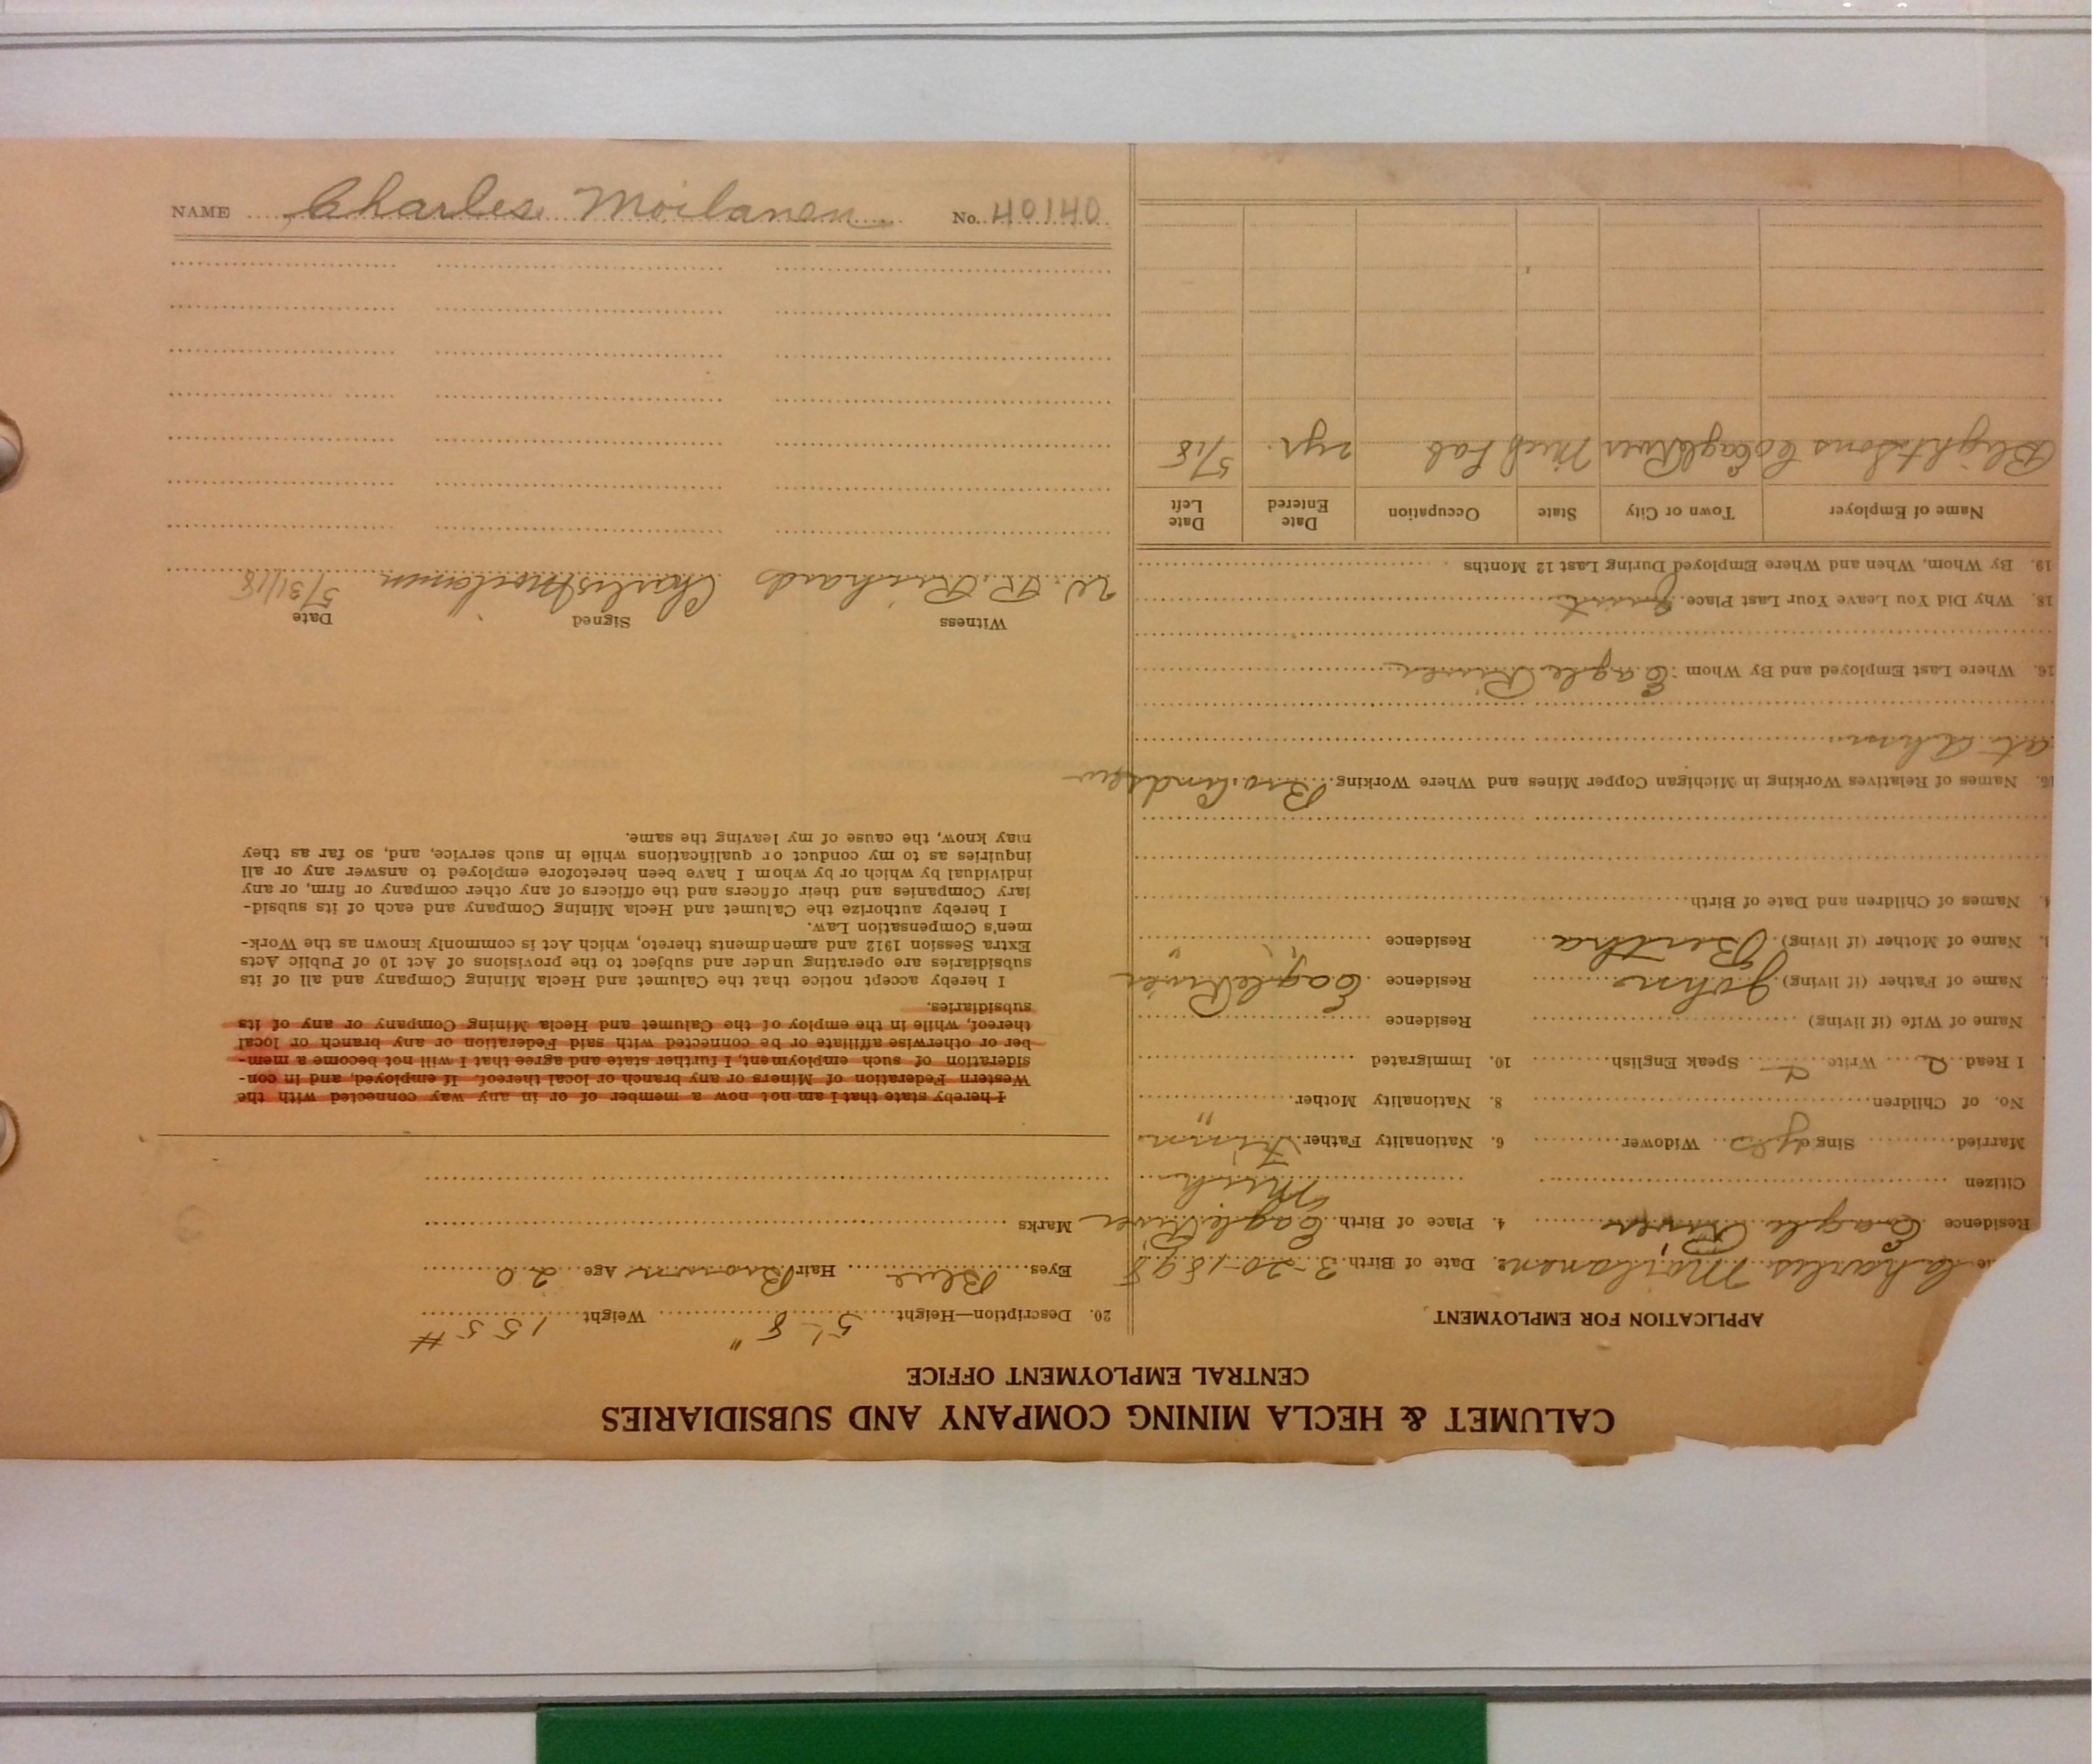 NAME Charles Moilanen No. 40140
CALUMET & HECLA MINING COMPANY AND SUBSIDIARIES
CENTRAL EMPLOYMENT OFFICE
APPLICATION FOR EMPLOYMENT
Charles Moilanen 2. Date of Birth 3-20-1898
Residence Eagle River 4. Place of Birth Eagle River
Mich
Citizen
Married Single Widower 6. Nationality Father Finn
No. of Children 8. Nationality Mother "
I Read Write Speak English 10. Immigrated
Name of Wife (if living) Residence
Name of Father (if living) John Residence Eagle River
Name of Mother (if living) Bertha Residence "
Names of Children and Date of Birth
Names of Relatives Working in Michigan Copper Mines and Where Working Bro. Andrew
at Ahmeek
16. Where Last Employed and By Whom: Eagle River
18. Why Did You Leave Your Last Place. Quit
19. By Whom, When and Where Employed During Last 12 Months
Name of Employer Town or City State Occupation Date Entered Date Left
Blight Sons Co Eagle River Mich Lab 2 yr. 5/18
20. Description—Height 5'-8" Weight 155 #
Eyes Blue Hair Brown Age 20
Marks
I hereby state that I am not now a member of or in any way connected with the
Western Federation of Miners or any branch or local thereof. If employed, and in con-
sideration of such employment, I further state and agree that I will not become a mem-
ber or otherwise affiliate or be connected with said Federation or any branch or local
thereof, while in the employ of the Calumet and Hecla Mining Company or any of its
subsidiaries.
I hereby accept notice that the Calumet and Hecla Mining Company and all of its
subsidiaries are operating under and subject to the provisions of Act 10 of Public Acts
Extra Session 1912 and amendments thereto, which Act is commonly known as the Work-
men's Compensation Law.
I hereby authorize the Calumet and Hecla Mining Company and each of its subsid-
iary Companies and their officers and the officers of any other company or firm, or any
individual by which or by whom I have been heretofore employed to answer any or all
inquiries as to my conduct or qualifications while in such service, and, so far as they
may know, the cause of my leaving the same.
Witness Signed Date
W. R. Richards Charles Moilanen 5/31/18